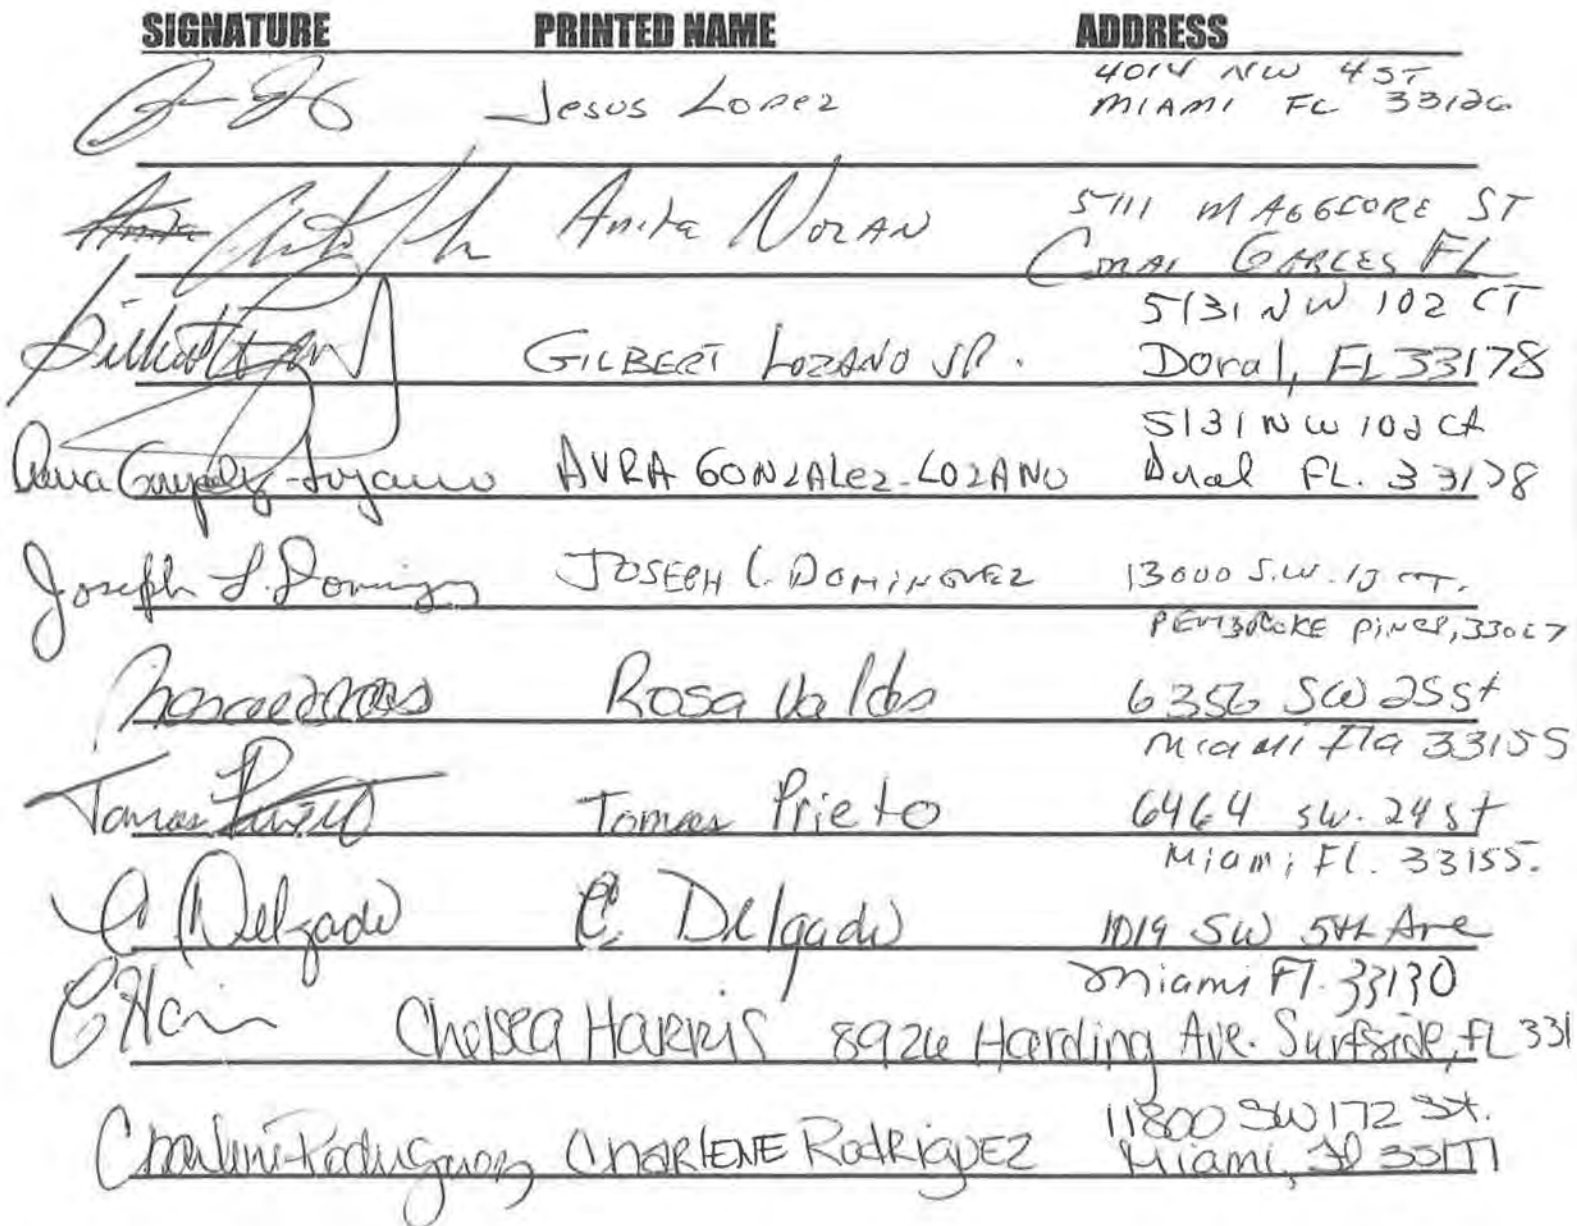 SIGNATURE PRINTED NAME ADDRESS
Jesus Lopez 4014 NW 4 ST
MIAMI FL 33126
Anita 5111 MAGGIORE ST
CORAL GABLES FL
5131 NW 102 CT
GILBERT LOZANO JR. Doral, FL 33178
5131 NW 102 Ct
Aura Gonzalez-Lozano AURA GONZALEZ-LOZANO Doral FL. 33178
Joseph L. Doming JOSEPH L. DOMINGUEZ 13000 S.W. CT.
PEMBROKE PINES, 33027
Rosa Valdes 6356 SW 25 St
Miami Fla 33155
Tomas Prieto Tomas Prieto 6464 sw. 24 st
Miami Fl. 33155.
C Delgado C. Delgado 1019 SW 5th Ave
Miami Fl. 33130
Chelsea HARRIS 8926 Harding Ave. Surfside, FL 331
11800 SW 172 St.
Charlene Rodriguez CHARLENE RodRiguez Miami, Fl 33177